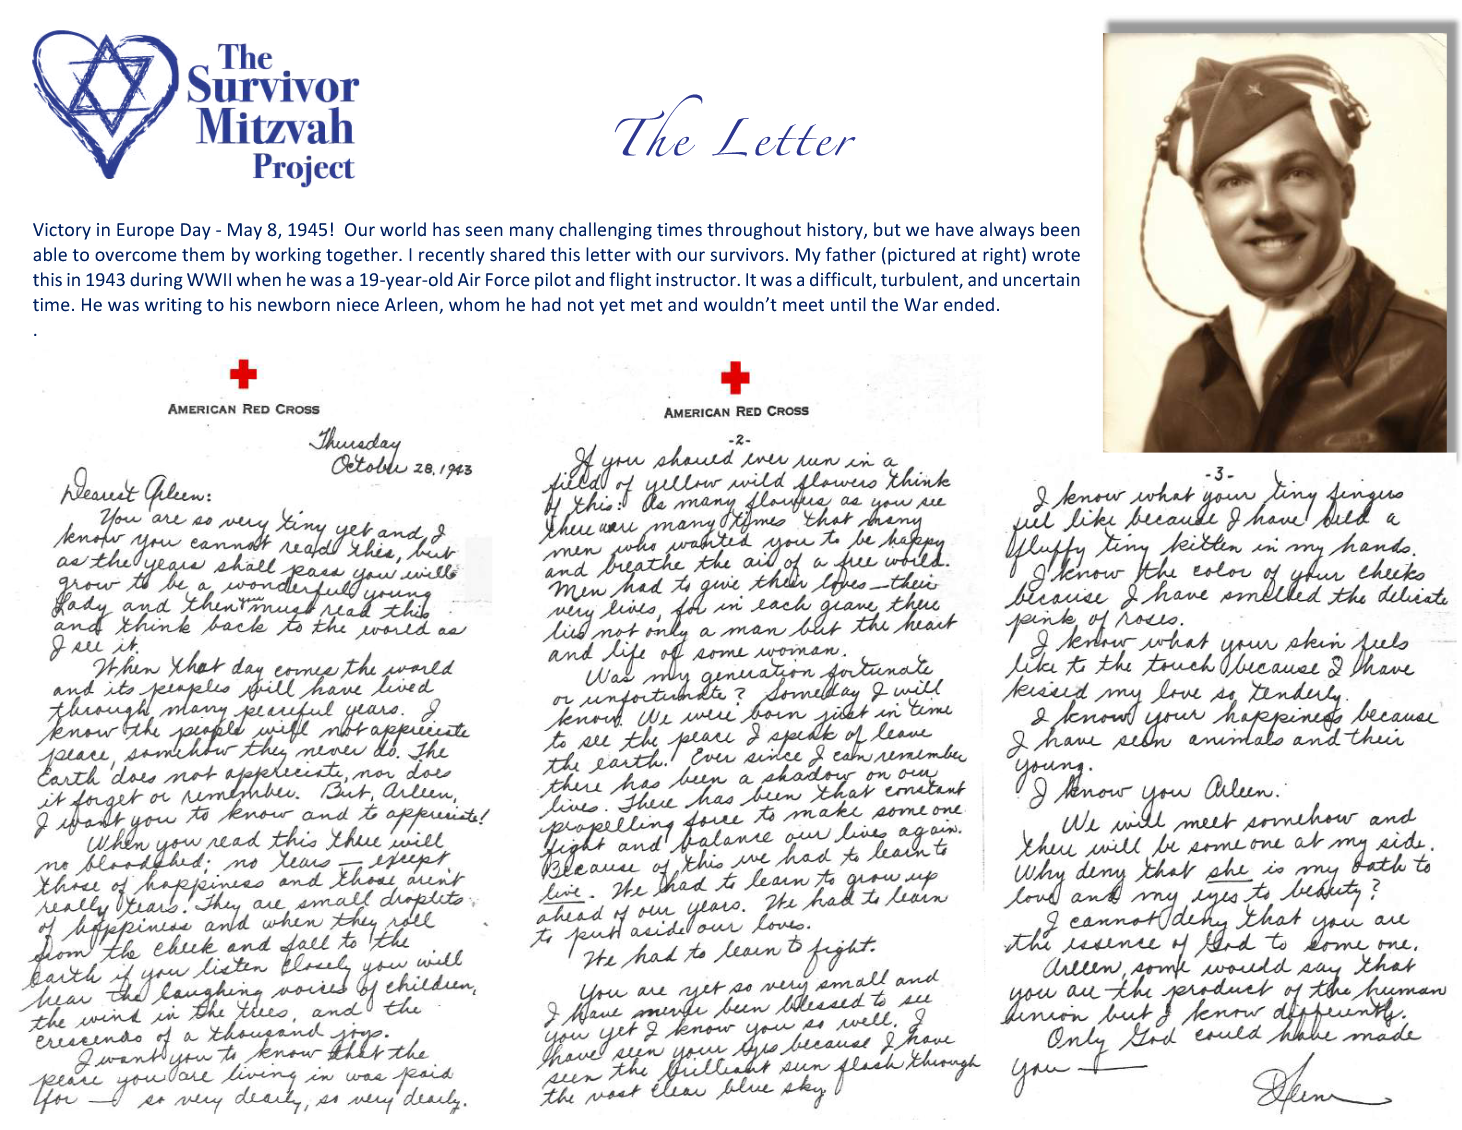 The
Survivor
Mitzvah
Project
The Letter
Victory in Europe Day - May 8, 1945! Our world has seen many challenging times throughout history, but we have always been
able to overcome them by working together. I recently shared this letter with our survivors. My father (pictured at right) wrote
this in 1943 during WWII when he was a 19-year-old Air Force pilot and flight instructor. It was a difficult, turbulent, and uncertain
time. He was writing to his newborn niece Arleen, whom he had not yet met and wouldn't meet until the War ended.
.
AMERICAN RED CROSS
Thursday
October 28, 1943
Dearest Arleen:
You are so very tiny yet and I
know you cannot read this, but
as the years shall pass you will
grow to be a wonderful young
lady and then you must read this
and think back to the world as
I see it.
When that day comes the world
and its peoples will have lived
through many peaceful years. I
know the people will not appreciate
peace, somehow they never do. The
Earth does not appreciate, nor does
it forget or remember. But, Arleen,
I want you to know and to appreciate!
When you read this there will
no bloodshed; no tears — except
those of happiness and those aren't
really tears. They are small droplets
of happiness and when they roll
from the cheek and fall to the
earth if you listen closely you will
hear the laughing voices of children,
the wind in the trees, and the
crescendo of a thousand joys.
I want you to know that the
peace you are living in was paid
for — so very dearly, so very dearly.
AMERICAN RED CROSS
-2-
If you should ever run in a
field of yellow wild flowers think
of this: As many flowers as you see
there were many times that many
men who wanted you to be happy
and breathe the air of a free world.
Men had to give their loves — their
very lives, for in each grave there
lies not only a man but the heart
and life of some woman.
Was my generation fortunate
or unfortunate? Someday I will
know. We were born just in time
to see the peace I speak of leave
the earth. Ever since I can remember
there has been a shadow on our
lives. There has been that constant
propelling force to make some one
fight and balance our lives again.
Because of this we had to learn to
live. We had to learn to grow up
ahead of our years. We had to learn
to put aside our loves.
We had to learn to fight.
You are yet so very small and
I have never been blessed to see
you yet I know you so well. I
have seen your eyes because I have
seen the brilliant sun flash through
the vast clear blue sky
-3-
I know what your tiny fingers
feel like because I have held a
fluffy tiny kitten in my hands.
I know the color of your cheeks
because I have smelled the delicate
pink of roses.
I know what your skin feels
like to the touch because I have
kissed my love so tenderly.
I know your happiness because
I have seen animals and their
young.
I know you Arleen.
We will meet somehow and
there will be some one at my side.
Why deny that she is my oath to
love and my eyes to beauty?
I cannot deny that you are
the essence of God to some one.
Arleen, some would say that
you are the product of the human
union but I know differently.
Only God could have made
you —